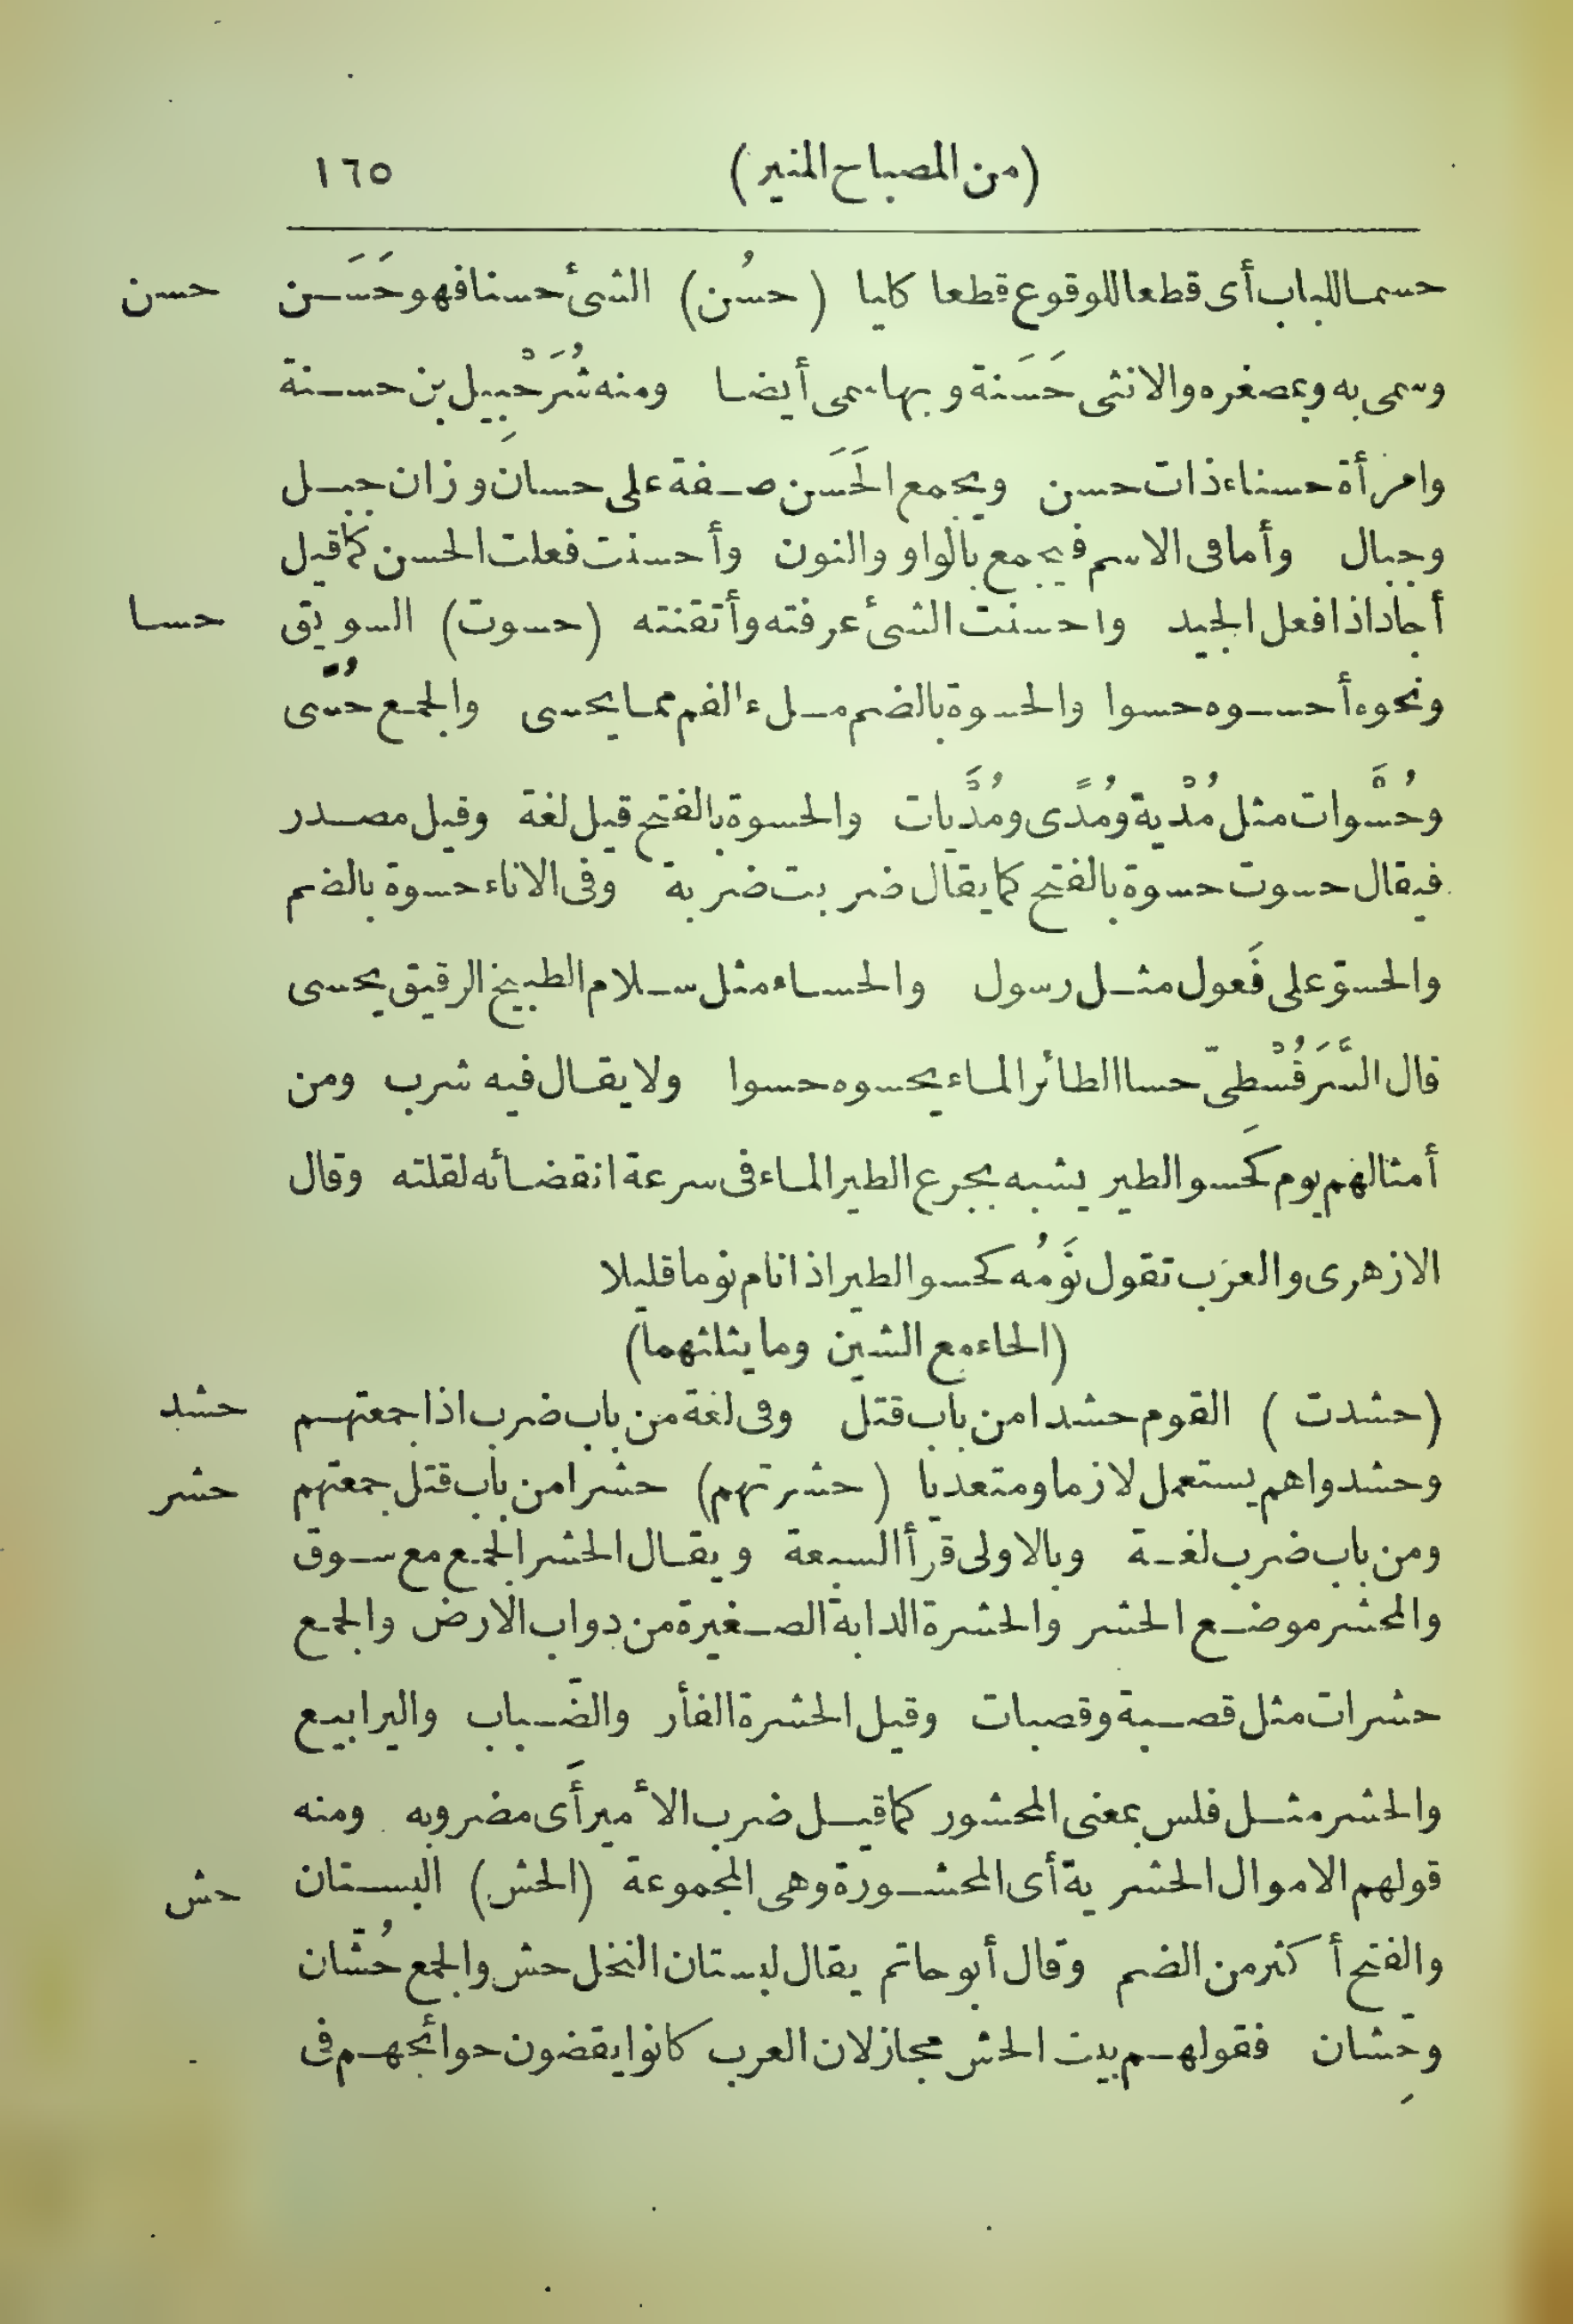 (من المصباح المنير) ١٦٥
حسما للباب أى قطعا للوقوع قطعا كليا (حسُن) الشئ حسنا فهو حَسَن حسن
وسمى به وبمصغره والانثى حَسَنة وبها سمى أيضا ومنه شُرَحْبِيل بن حسنة
وامرأة حسناء ذات حسن ويجمع الحَسَن صفة على حسان وزان جبل
وجبال وأما فى الاسم فيجمع بالواو والنون وأحسنت فعلت الحسن كما قيل
أجاد اذا فعل الجيد واحسنت الشئ عرفته وأتقنته (حسوت) السويق حسا
ونحوه أحسوه حسوا والحسوة بالضم ملء الفم مما يحسى والجمع حُسًى
وحُسْوات مثل مُدْية ومُدًى ومُدْيات والحسوة بالفتح قيل لغة وقيل مصدر
فيقال حسوت حسوة بالفتح كما يقال ضربت ضربة وفى الاناء حسوة بالضم
والحسوّ على فَعول مثل رسول والحساء مثل سلام الطبيخ الرقيق يحسى
قال السَّرَقُسْطىّ حسا الطائر الماء يحسوه حسوا ولا يقال فيه شرب ومن
أمثالهم يوم كَحسو الطير يشبه بجرع الطير الماء فى سرعة انقضائه لقلته وقال
الازهرى والعرب تقول نَوْمُه كحسو الطير اذا نام نوما قليلا
(الحاء مع الشين وما يثلثهما)
(حشدت) القوم حشدا من باب قتل وفى لغة من باب ضرب اذا جمعتهم حشد
وحشدوا هم يستعمل لازما ومتعديا (حشرتهم) حشرا من باب قتل جمعتهم حشر
ومن باب ضرب لغة وبالاولى قرأ السبعة ويقال الحشر الجمع مع سوق
والمحشر موضع الحشر والحشرة الدابة الصغيرة من دواب الارض والجمع
حشرات مثل قصبة وقصبات وقيل الحشرة الفأر والضّباب واليرابيع
والحشر مثل فلس بمعنى المحشور كما قيل ضرب الأمير أَى مضروبه ومنه
قولهم الاموال الحشرية أى المحشورة وهى المجموعة (الحش) البستان حش
والفتح أكثر من الضم وقال أبو حاتم يقال لبستان النخل حش والجمع حُشّان
وحِشّان فقولهم بيت الحش مجاز لان العرب كانوا يقضون حوائجهم فى